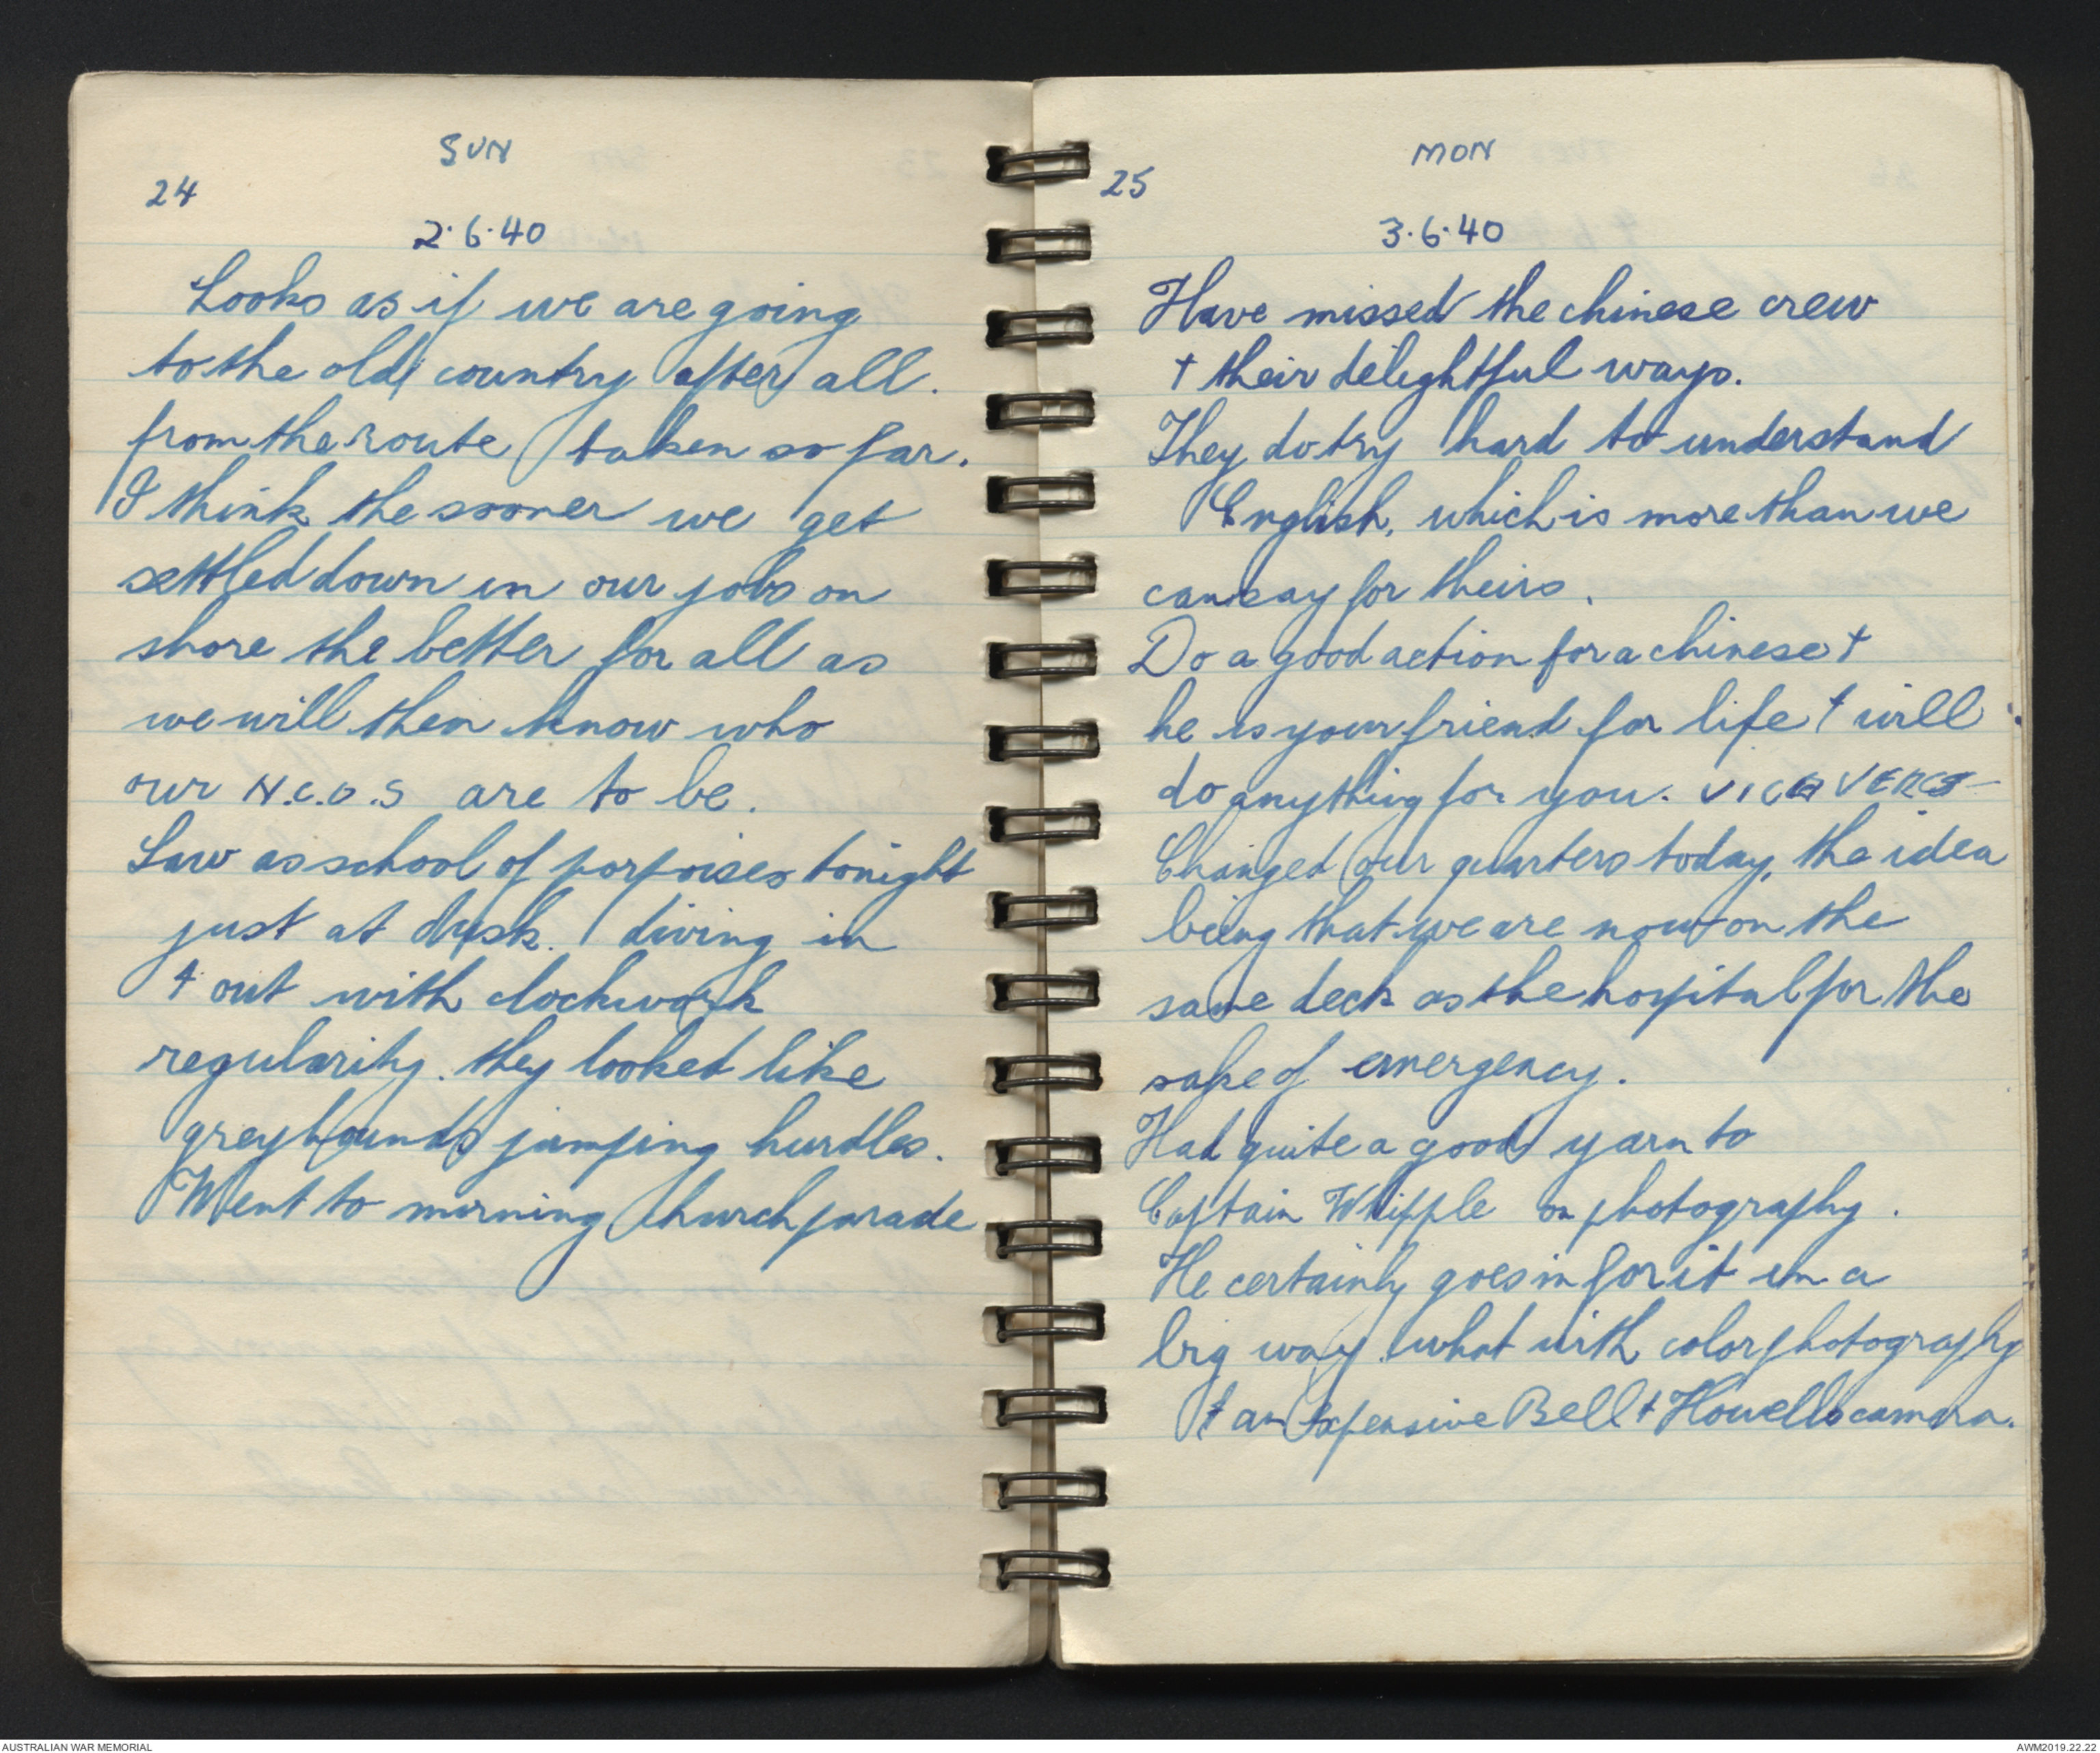 SUN
24
2.6.40
Looks as if we are going
to the old country after all.
from the route taken so far.
I think the sooner we get
settled down in our jobs on
shore the better for all as
we will then know who
our N.C.O.S are to be.
Saw as school of porpoises tonight
just at dusk. diving in
+ out with clockwork
regularity. they looked like
greyhounds jumping hurdles.
Went to morning church parade
MON
25
3.6.40
Have missed the chinese crew
+ their delightful ways.
They do try hard to understand
English, which is more than we
can say for theirs.
Do a good action for a chinese +
he is your friend for life + will
do anything for you. VICE VERCE
Changed our quarters today, the idea
being that we are now on the
same deck as the hospital for the
sake of emergency.
Had quite a good yarn to
Captain Whipple on photography.
He certainly goes in for it in a
big way. what with color photography
+ an Expensive Bell + Howells camera.
AUSTRALIAN WAR MEMORIAL
AWM2019.22.22